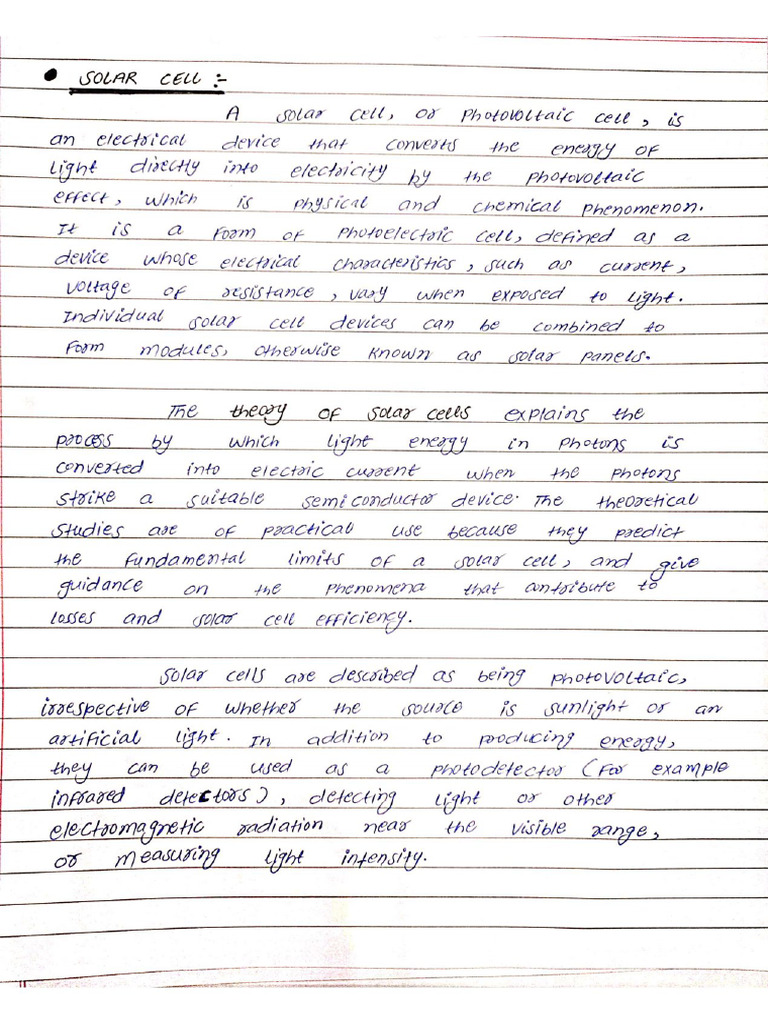 • SOLAR CELL :-
A solar cell, or photovoltaic cell, is
an electrical device that converts the energy of
light directly into electricity by the photovoltaic
effect, which is physical and chemical phenomenon.
It is a form of photoelectric cell, defined as a
device whose electrical characteristics, such as current,
voltage of resistance, vary when exposed to light.
Individual solar cell devices can be combined to
form modules, otherwise known as solar panels.
The theory of solar cells explains the
process by which light energy in photons is
converted into electric current when the photons
strike a suitable semiconductor device. The theoretical
studies are of practical use because they predict
the fundamental limits of a solar cell, and give
guidance on the phenomena that contribute to
losses and solar cell efficiency.
Solar cells are described as being photovoltaic,
irrespective of whether the source is sunlight or an
artificial light. In addition to producing energy,
they can be used as a photodetector (for example
infrared detectors), detecting light or other
electromagnetic radiation near the visible range,
or measuring light intensity.